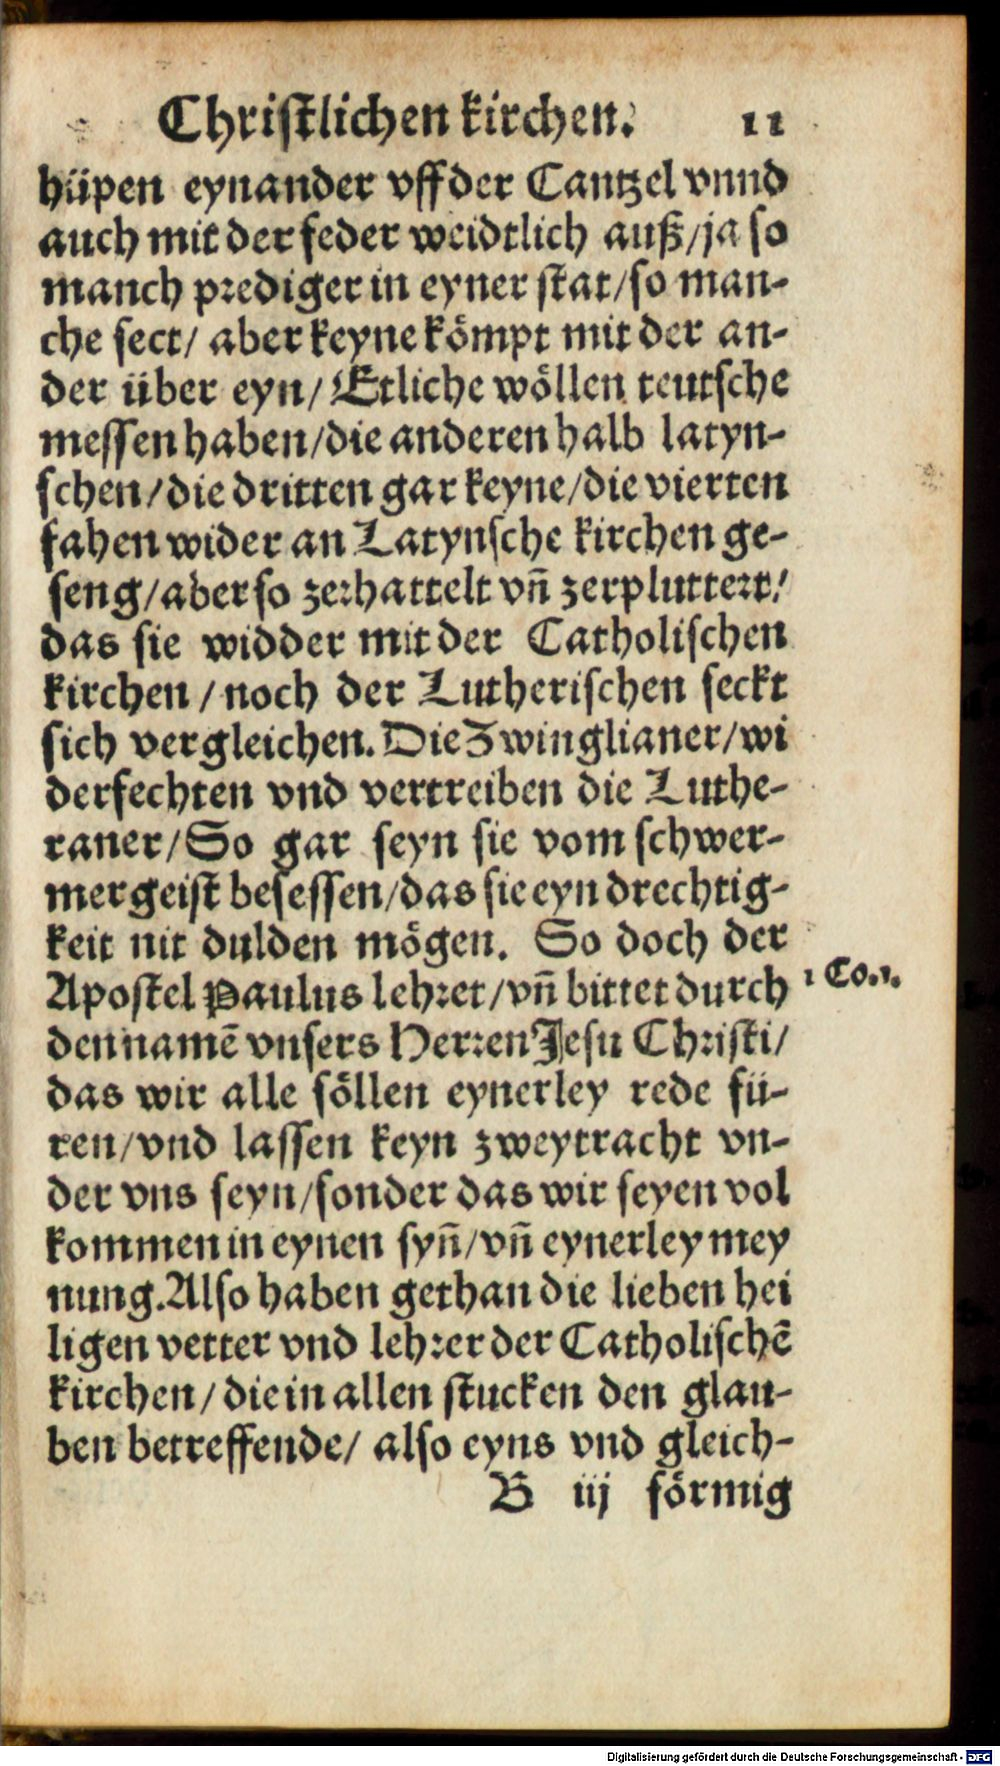 Christlichen kirchen. 11
hüpen eynander vff der Cantzel vnnd
auch mit der feder weidtlich auß/ja so
manch prediger in eyner stat/so man-
che sect/ aber keyne kömpt mit der an-
der über eyn/ Etliche wöllen teutsche
messen haben/die anderen halb latyn-
schen/die dritten gar keyne/die vierten
fahen wider an Latynsche kirchen ge-
seng/aber so zerhattelt vñ zerpluttert/
das sie widder mit der Catholischen
kirchen/noch der Lutherischen seckt
sich vergleichen. Die Zwinglianer/wi
derfechten vnd vertreiben die Luthe-
raner/So gar seyn sie vom schwer-
mergeist besessen/das sie eyn drechtig-
keit nit dulden mögen. So doch der
Apostel Paulus lehret/vñ bittet durch
1 Co.1.
den namẽ vnsers Herren Jesu Christi/
das wir alle söllen eynerley rede fü-
ren/vnd lassen keyn zweytracht vn-
der vns seyn/sonder das wir seyen vol
kommen in eynen syñ/vñ eynerley mey
nung. Also haben gethan die lieben hei
ligen vetter vnd lehrer der Catholischẽ
kirchen/die in allen stucken den glau-
ben betreffende/ also eyns vnd gleich-
B iij förmig
Digitalisierung gefördert durch die Deutsche Forschungsgemeinschaft - DFG